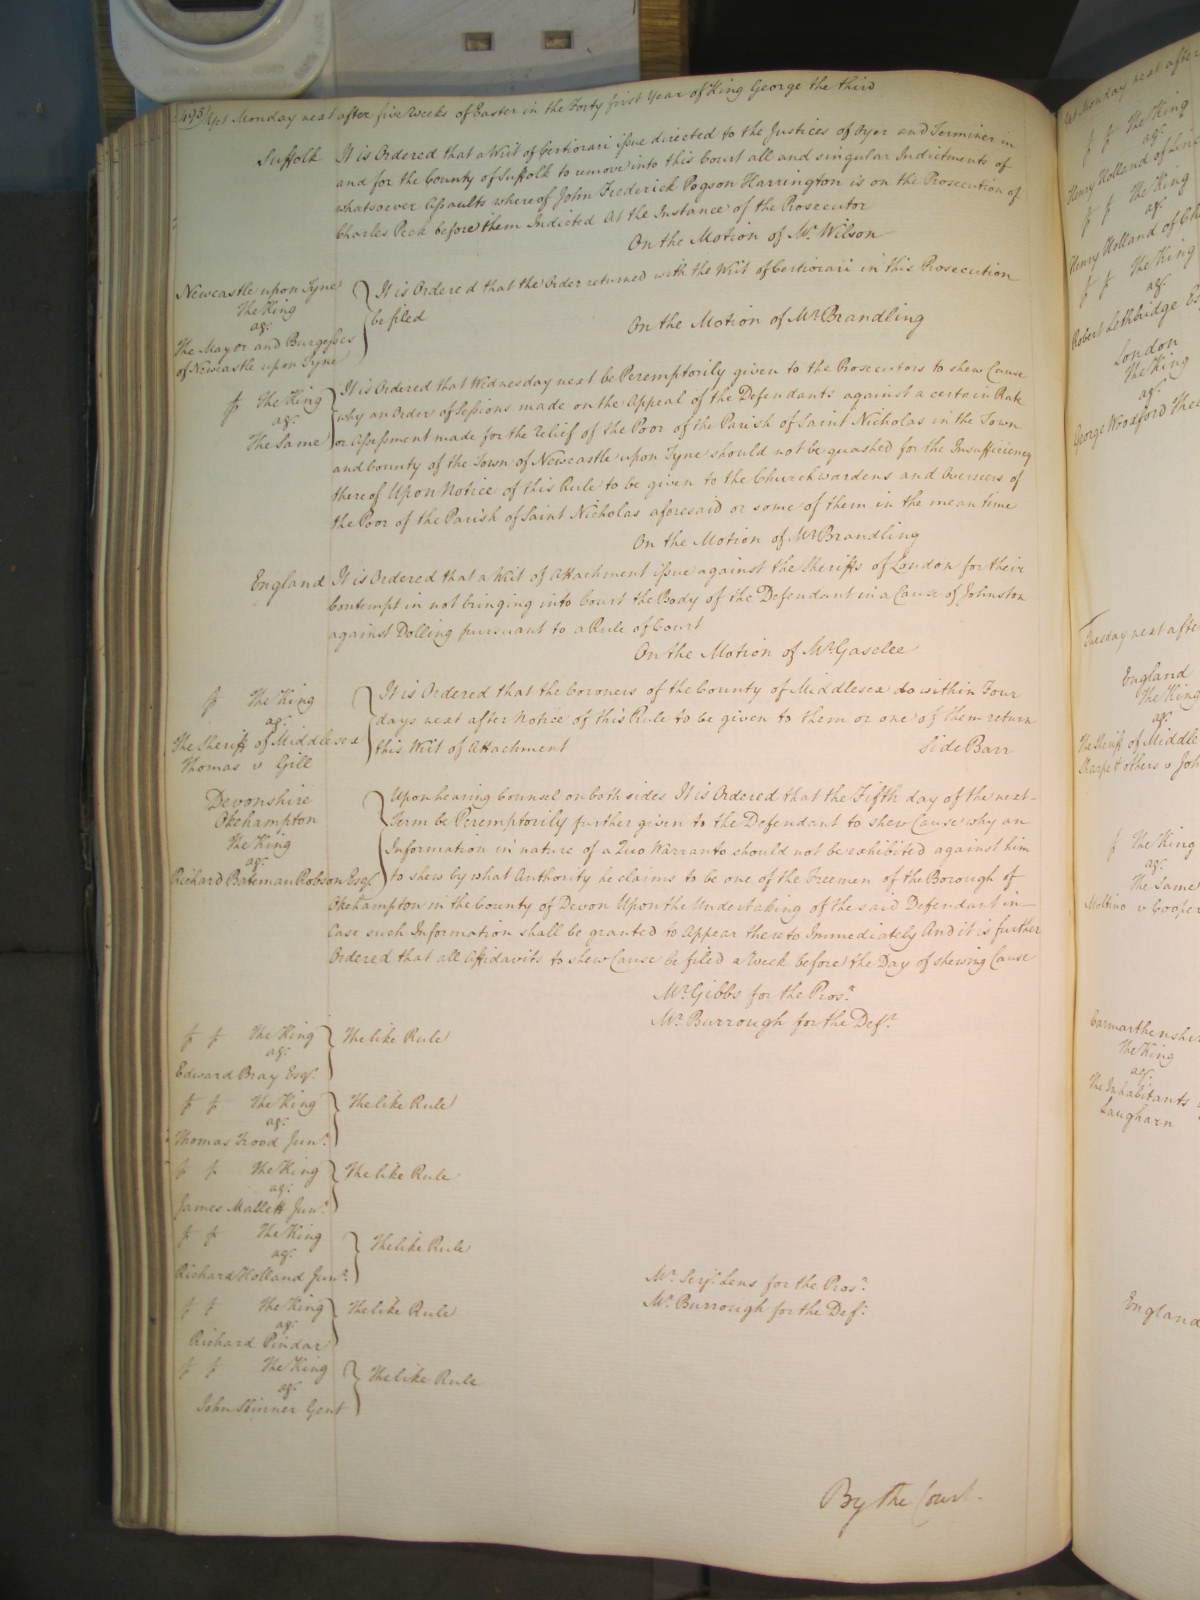 495) Yet Monday next after five Weeks of Easter in the Forty first Year of King George the third
Suffolk It is Ordered that a Writ of Certiorari issue directed to the Justices of Oyer and Terminer in
and for the County of Suffolk to remove into this Court all and singular Indictments of
whatsoever Assaults whereof John Frederick Pogson Harrington is on the Prosecution of
Charles Peck before them Indicted At the Instance of the Prosecutor
On the Motion of Mr. Wilson
Newcastle upon Tyne
The King
agt.
The Mayor and Burgesses
of Newcastle upon Tyne
It is Ordered that the Order returned with the Writ of Certiorari in this Prosecution
be filed
On the Motion of Mr Brandling
The King
agt.
The Same
It is Ordered that Wednesday next be Peremptorily given to the Prosecutors to shew Cause
why an Order of Sessions made on the Appeal of the Defendants against a certain Rate
or Assessment made for the relief of the Poor of the Parish of Saint Nicholas in the Town
and County of the Town of Newcastle upon Tyne should not be quashed for the Insufficiency
thereof Upon Notice of this Rule to be given to the Churchwardens and Overseers of
the Poor of the Parish of Saint Nicholas aforesaid or some of them in the mean time
On the Motion of Mr Brandling
England It is Ordered that a Writ of Attachment issue against the Sheriffs of London for their
Contempt in not bringing into Court the Body of the Defendant in a Cause of Johnston
against Dolling pursuant to a Rule of Court
On the Motion of Mr Gaselee
The King
agt.
The Sheriff of Middlesex
Thomas v Gill
It is Ordered that the Coroners of the County of Middlesex do within Four
days next after Notice of this Rule to be given to them or one of them return
this Writ of Attachment Side Barr
Devonshire
Okehampton
The King
agt.
Richard Bateman Robson Esqr.
Upon hearing Counsel on both sides It is Ordered that the Fifth day of the next
Term be Peremptorily further given to the Defendant to shew Cause why an
Information in nature of a Quo Warranto should not be exhibited against him
to shew by what Authority he claims to be one of the Freemen of the Borough of
Okehampton in the County of Devon Upon the Undertaking of the said Defendant in
Case such Information shall be granted to Appear thereto Immediately And it is further
Ordered that all Affidavits to shew Cause be filed a Week before the Day of shewing Cause
Mr. Gibbs for the Prosr.
Mr. Burrough for the Deft.
The King
agt.
Edward Bray Esqr.
The like Rule
The King
agt.
Thomas Frood Junr.
The like Rule
The King
agt.
James Mallett Junr.
The like Rule
The King
agt.
Richard Holland Junr.
The like Rule
Mr. Serjt. Lens for the Prosr.
Mr. Burrough for the Deft.
The King
agt.
Richard Pindar
The like Rule
The King
agt.
John Skinner Gent
The like Rule
By the Court
Yet Monday next after
The King
agt.
Henry Holland of
The King
agt.
Henry Holland of
The King
agt.
Robert Lethbridge
London
The King
agt.
George Woodford
Tuesday next after
England
The King
agt.
The Sheriff of
Sharpe & others v
The King
agt.
The Same
v Cooper
The King
agt.
The Inhabitants
Laugharn
England